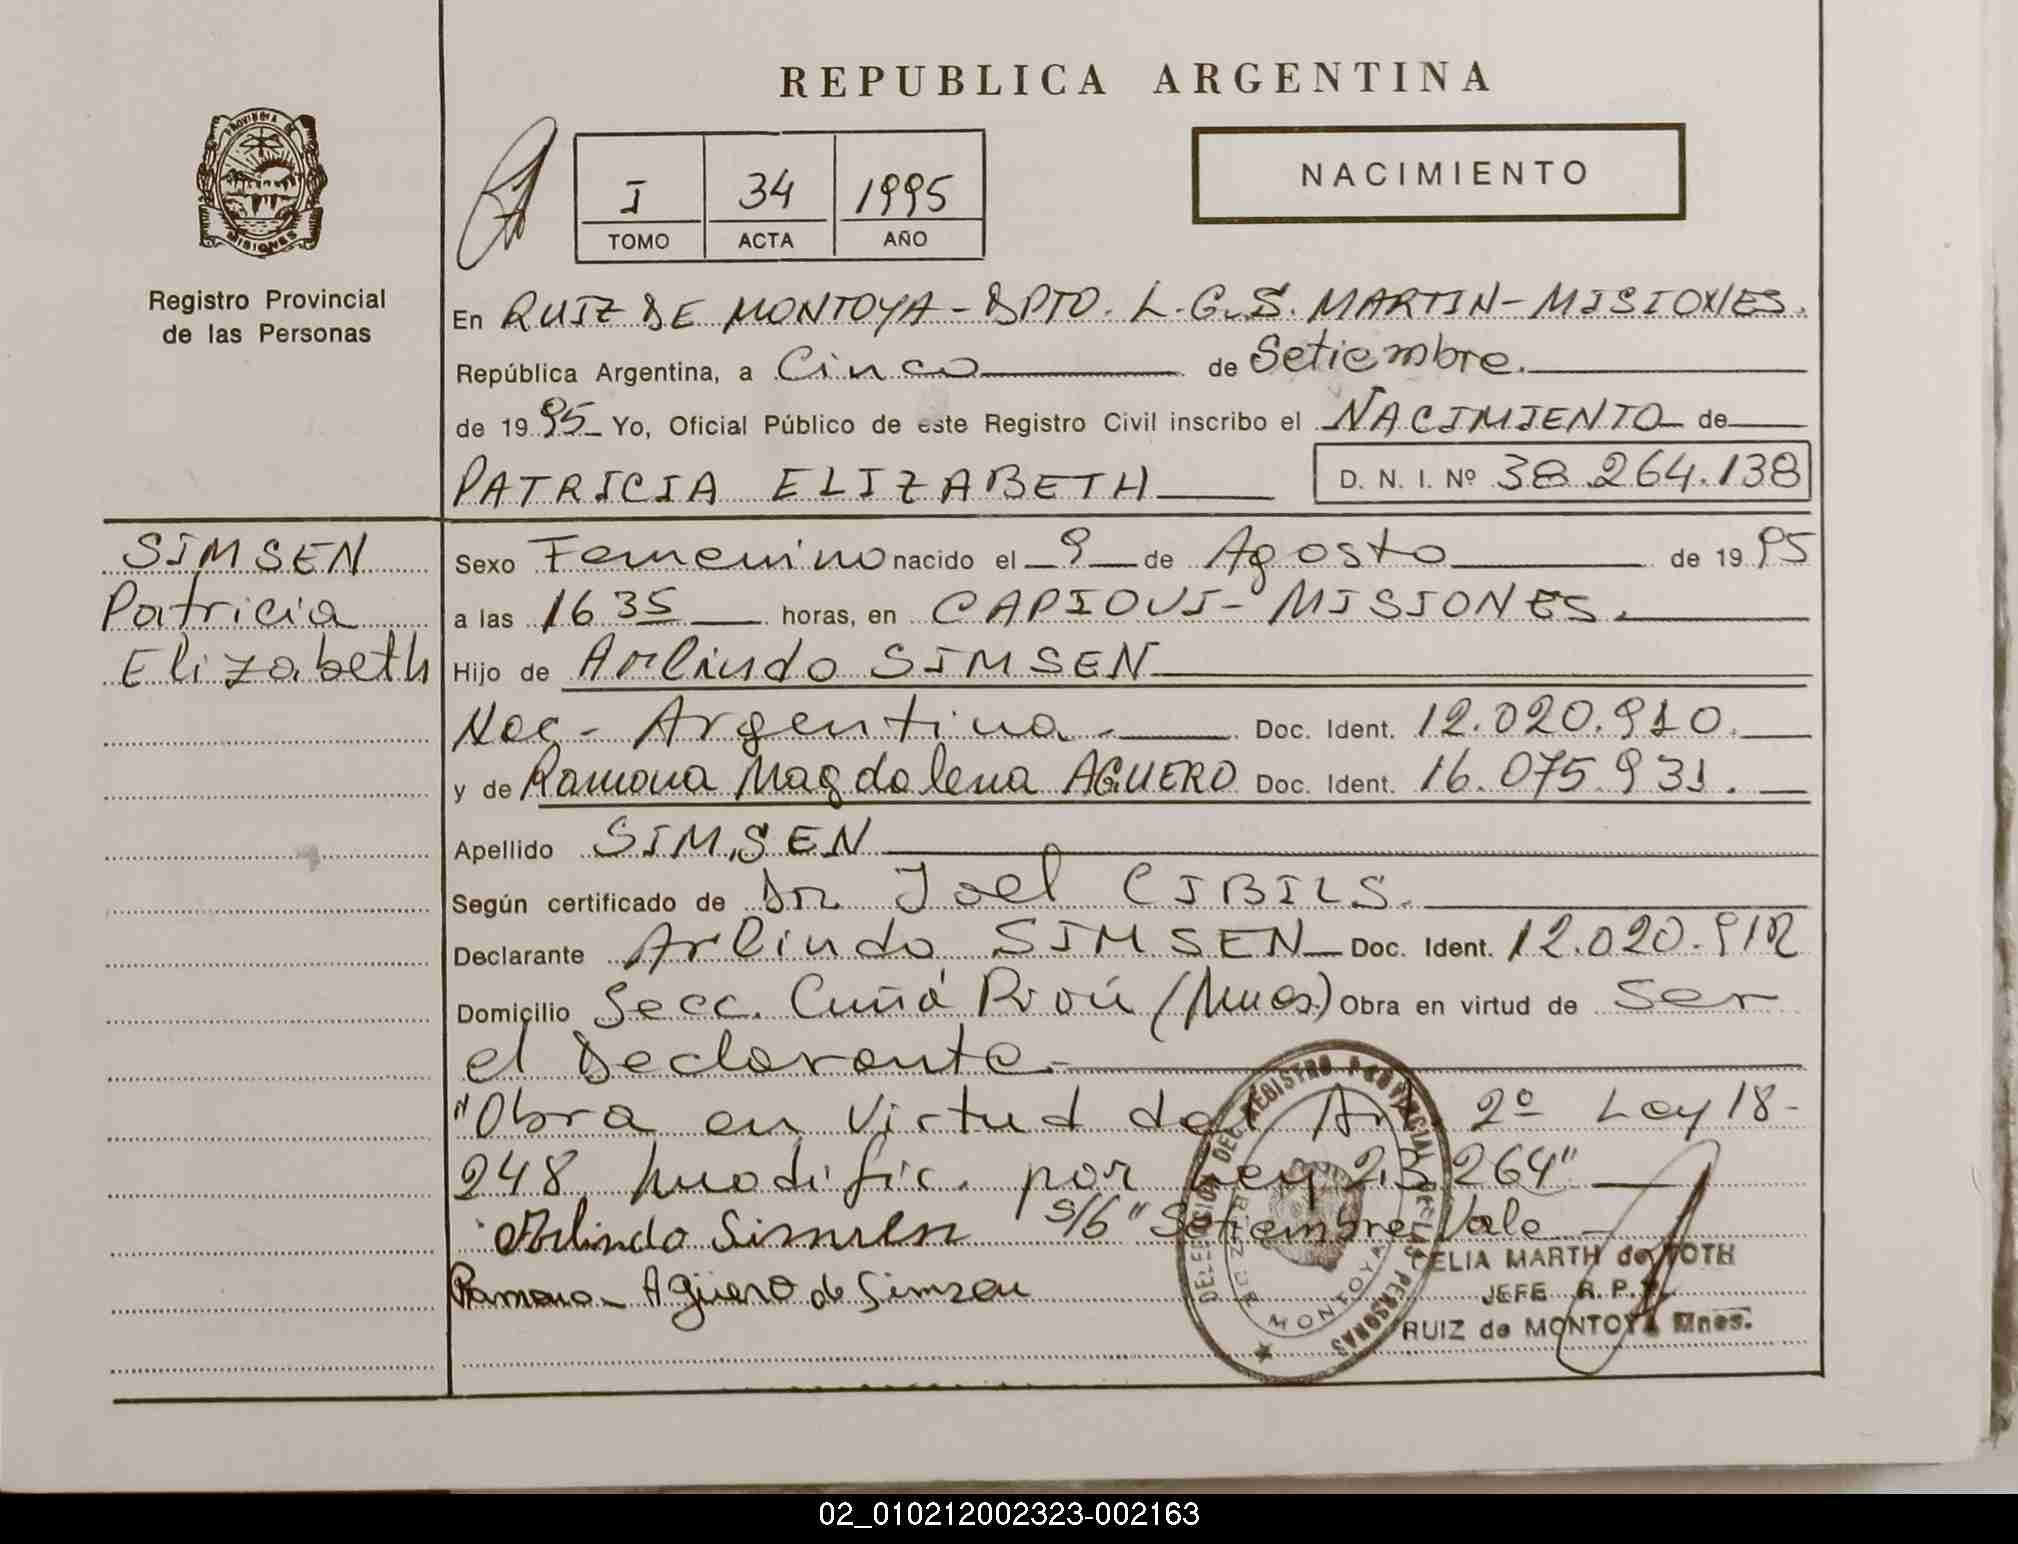 REPUBLICA ARGENTINA
PROVINCIA DE
MISIONES
Registro Provincial
de las Personas
I 34 1995
TOMO ACTA AÑO
NACIMIENTO
En RUIZ DE MONTOYA - DPTO. L.G.S. MARTIN - MISIONES.
República Argentina, a Cinco de Setiembre.
de 1995 Yo, Oficial Público de este Registro Civil inscribo el NACIMIENTO de
PATRICIA ELIZABETH D. N. I. Nº 38.264.138
SIMSEN
Patricia
Elizabeth
Sexo Femenino nacido el 9 de Agosto de 1995
a las 16 35 horas, en CAPIOVI - MISIONES.
Hijo de Arlindo SIMSEN
Nac - Argentina - Doc. Ident. 12.020.910.
y de Ramona Magdalena AGUERO Doc. Ident. 16.075.931.
Apellido SIMSEN
Según certificado de Dr. Joel CIBILS.
Declarante Arlindo SIMSEN Doc. Ident. 12.020.912
Domicilio Secc. Cuñá Pirú (Mnes.) Obra en virtud de ser
el Declarante.
"Obra en virtud del Art 2º Ley 18-
248 modific. por Ley 23.264"
Arlindo Simsen s/b "Setiembre" Vale
Ramona Agüero de Simsen
DELEGACION DEL REGISTRO PROVINCIAL DE LAS PERSONAS
RUIZ DE MONTOYA
CELIA MARTH de TOTH
JEFE R.P.P.
RUIZ de MONTOYA Mnes.
02_010212002323-002163